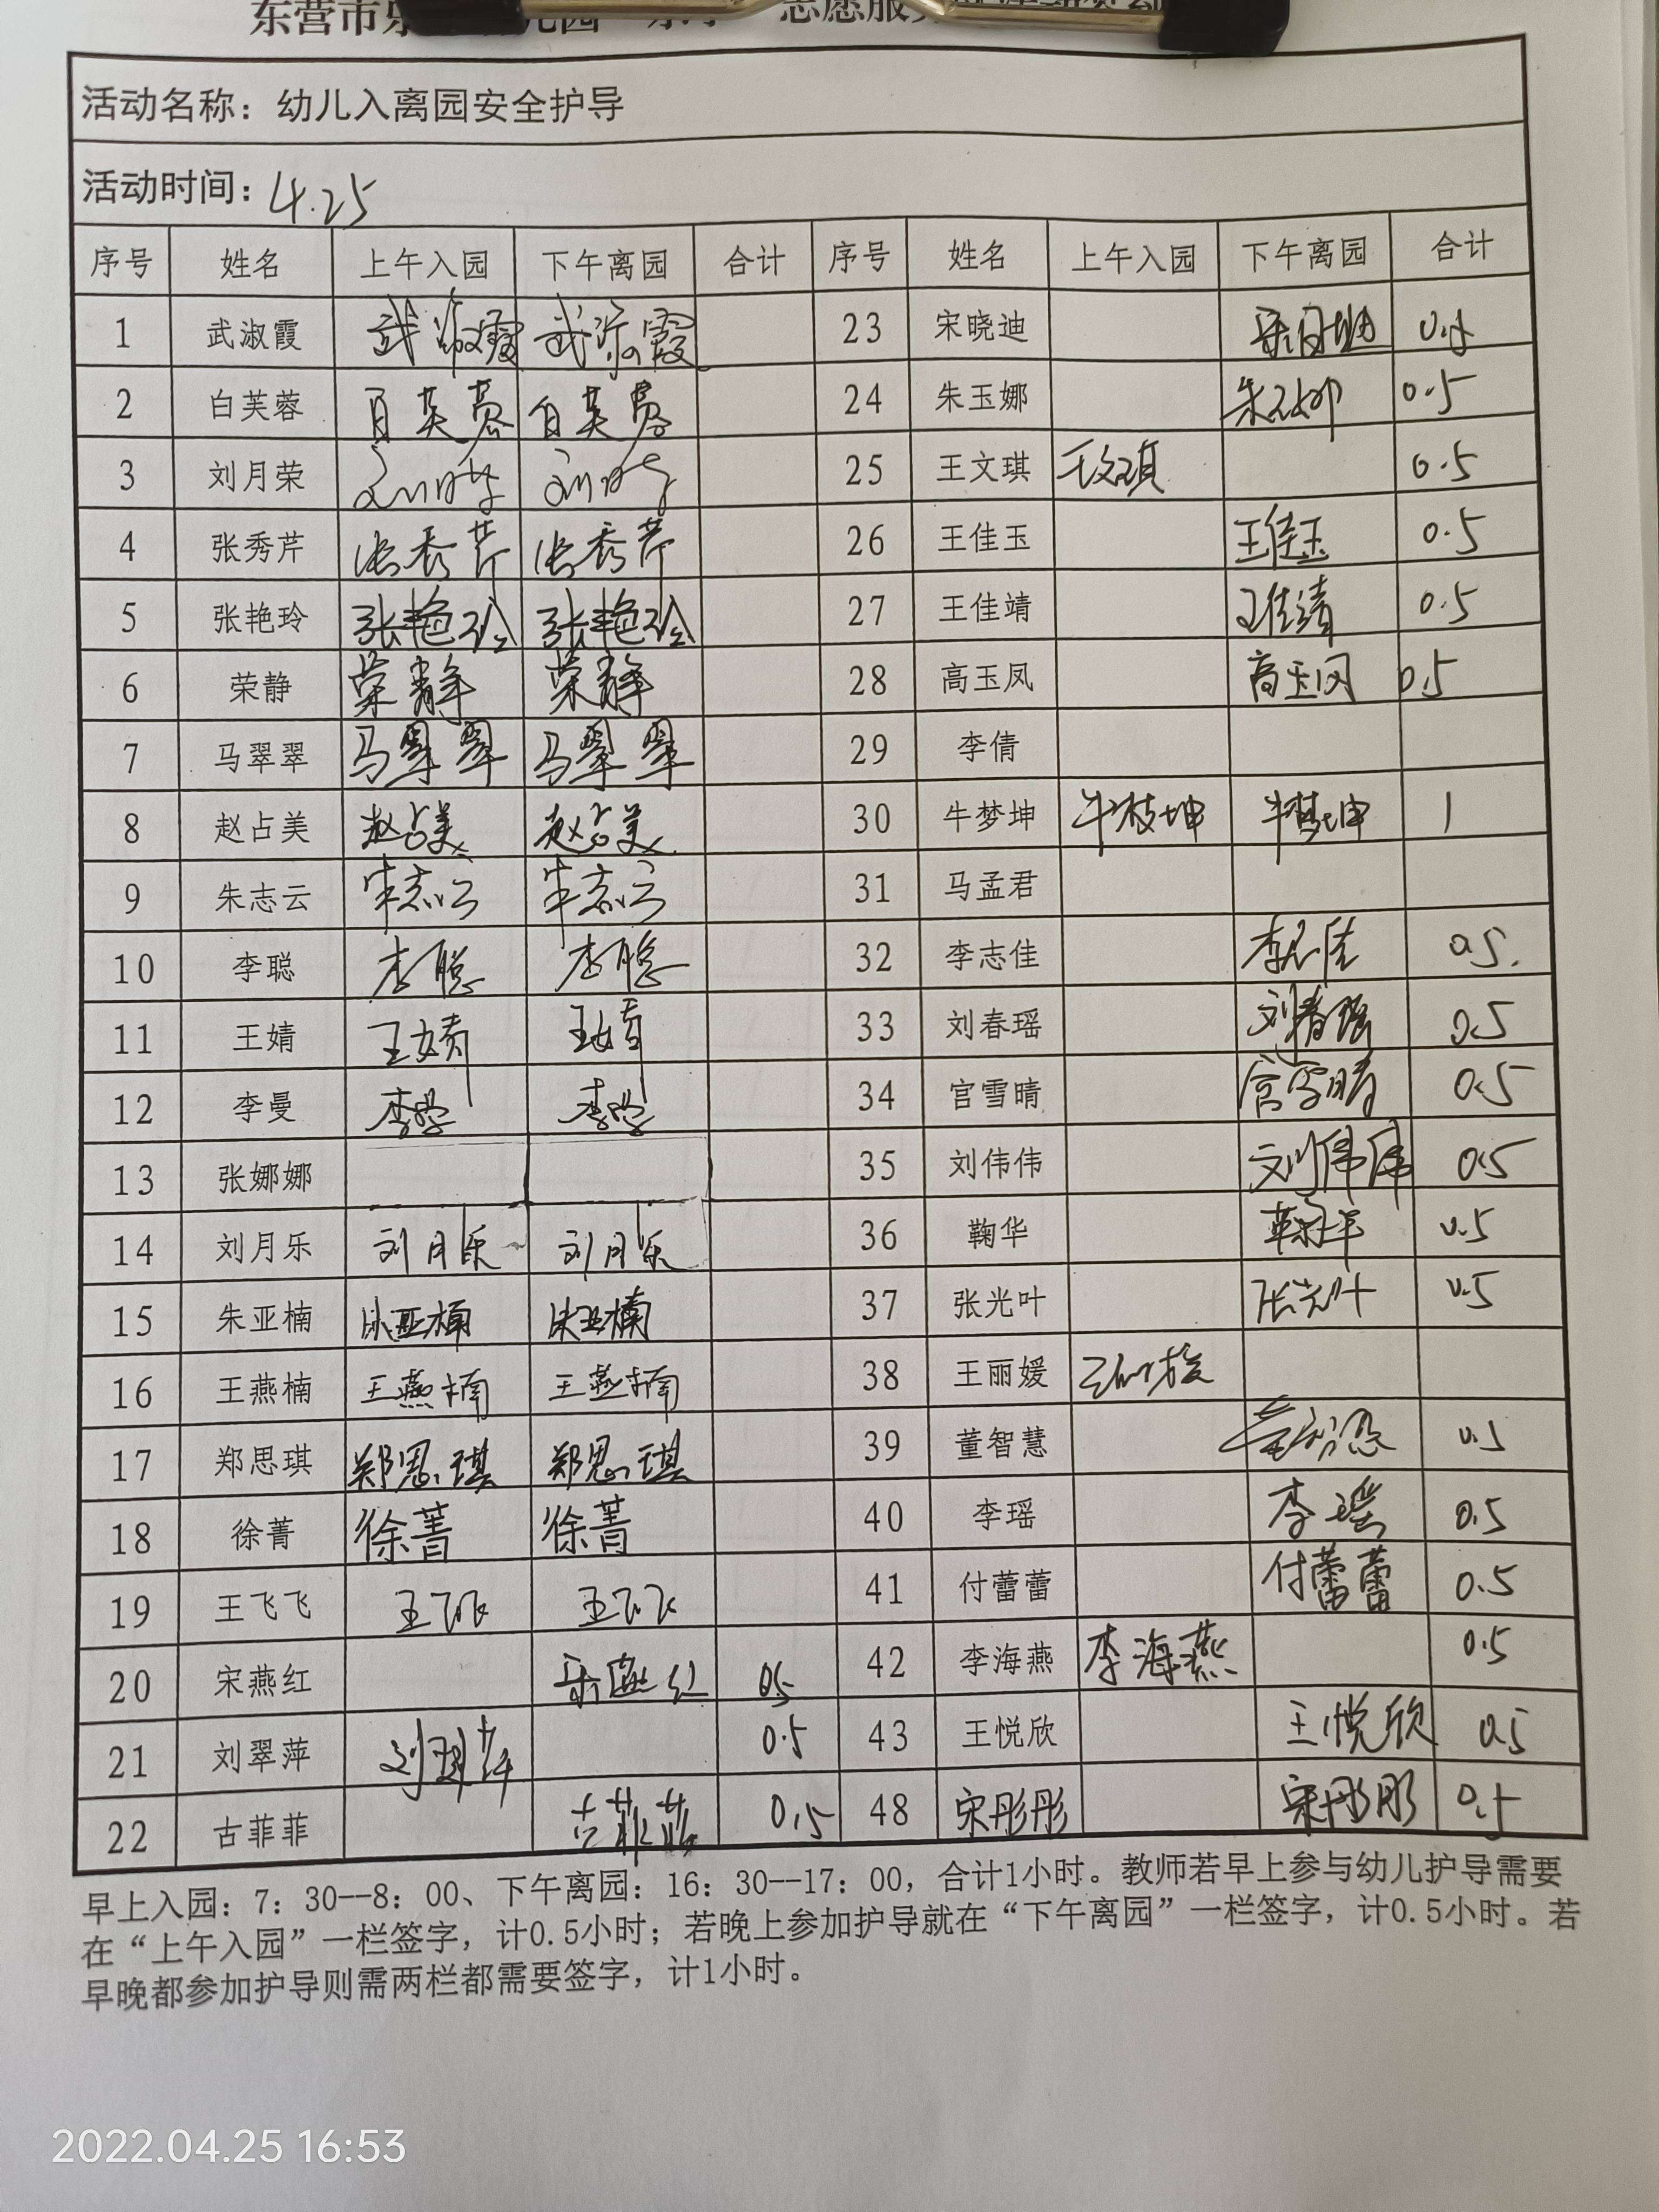 东营市
活动名称：幼儿入离园安全护导
活动时间：4.25
序号 姓名 上午入园 下午离园 合计 序号 姓名 上午入园 下午离园 合计
1 武淑霞 武淑霞 武淑霞 23 宋晓迪 0.5
2 白芙蓉 白芙蓉 白芙蓉 24 朱玉娜 朱玉娜 0.5
3 刘月荣 刘月荣 刘月荣 25 王文琪 王文琪 0.5
4 张秀芹 张秀芹 张秀芹 26 王佳玉 王佳玉 0.5
5 张艳玲 张艳玲 张艳玲 27 王佳靖 王佳靖 0.5
6 荣静 荣静 荣静 28 高玉凤 高玉凤 0.5
7 马翠翠 马翠翠 马翠翠 29 李倩
8 赵占美 赵占美 赵占美 30 牛梦坤 牛梦坤 牛梦坤 1
9 朱志云 朱志云 朱志云 31 马孟君
10 李聪 李聪 李聪 32 李志佳 李志佳 0.5
11 王婧 王婧 王婧 33 刘春瑶 刘春瑶 0.5
12 李曼 李曼 李曼 34 宫雪晴 宫雪晴 0.5
13 张娜娜 35 刘伟伟 刘伟伟 0.5
14 刘月乐 刘月乐 刘月乐 36 鞠华 鞠华 0.5
15 朱亚楠 朱亚楠 朱亚楠 37 张光叶 张光叶 0.5
16 王燕楠 王燕楠 王燕楠 38 王丽媛 王丽媛
17 郑思琪 郑思琪 郑思琪 39 董智慧 董智慧 0.5
18 徐菁 徐菁 徐菁 40 李瑶 李瑶 0.5
19 王飞飞 王飞飞 王飞飞 41 付蕾蕾 付蕾蕾 0.5
20 宋燕红 宋燕红 0.5 42 李海燕 李海燕 0.5
21 刘翠萍 刘翠萍 0.5 43 王悦欣 王悦欣 0.5
22 古菲菲 古菲菲 0.5 48 宋彤彤 宋彤彤 0.5
早上入园：7：30--8：00、下午离园：16：30--17：00，合计1小时。教师若早上参与幼儿护导需要
在“上午入园”一栏签字，计0.5小时；若晚上参加护导就在“下午离园”一栏签字，计0.5小时。若
早晚都参加护导则需两栏都需要签字，计1小时。
2022.04.25 16:53